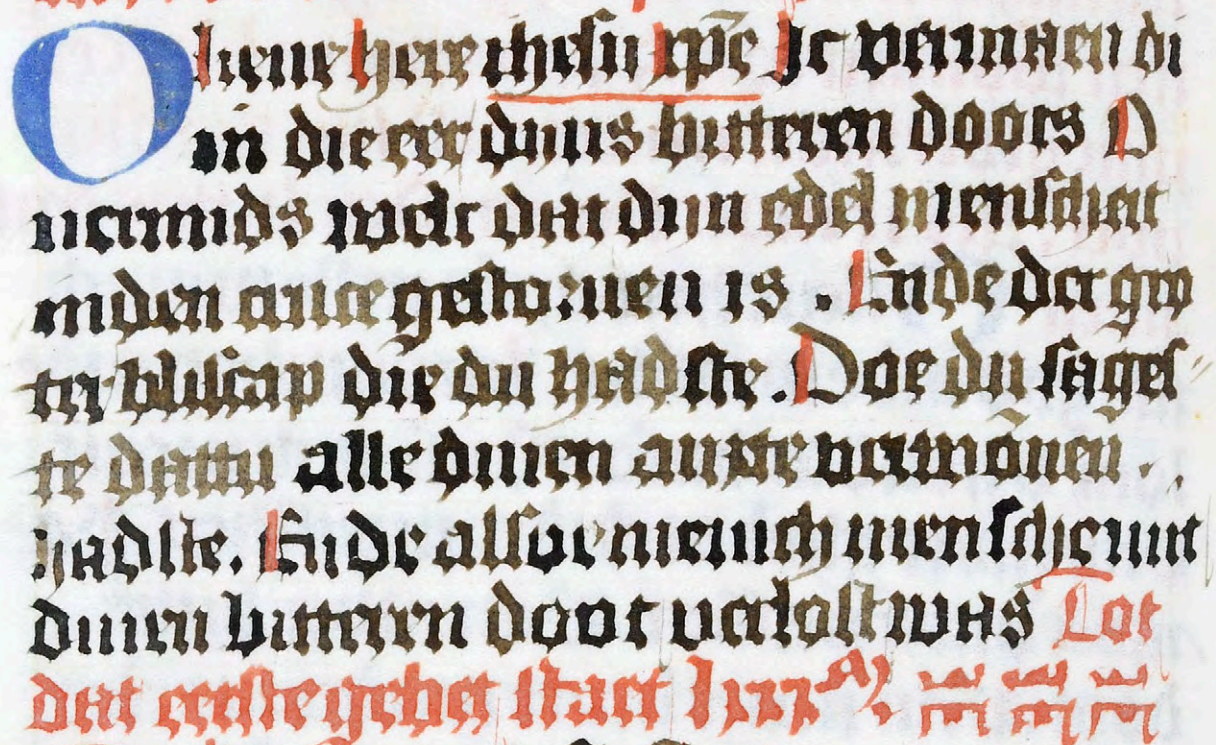 O lieue here ihesu xpe Ic vermaen di
in die eer dijns bitteren doots D
uermids welc dat dijn edel menscheit
inden cruce gestoruen is . Ende der gro
ter bliscap die du hadste . Doe du sages
te dattu alle dinen arste verwōnen .
hadste . Ende alsoe menich mensche mit
dinen bitteren doot verlost was Tot
dat eerste gebet staet lxxx